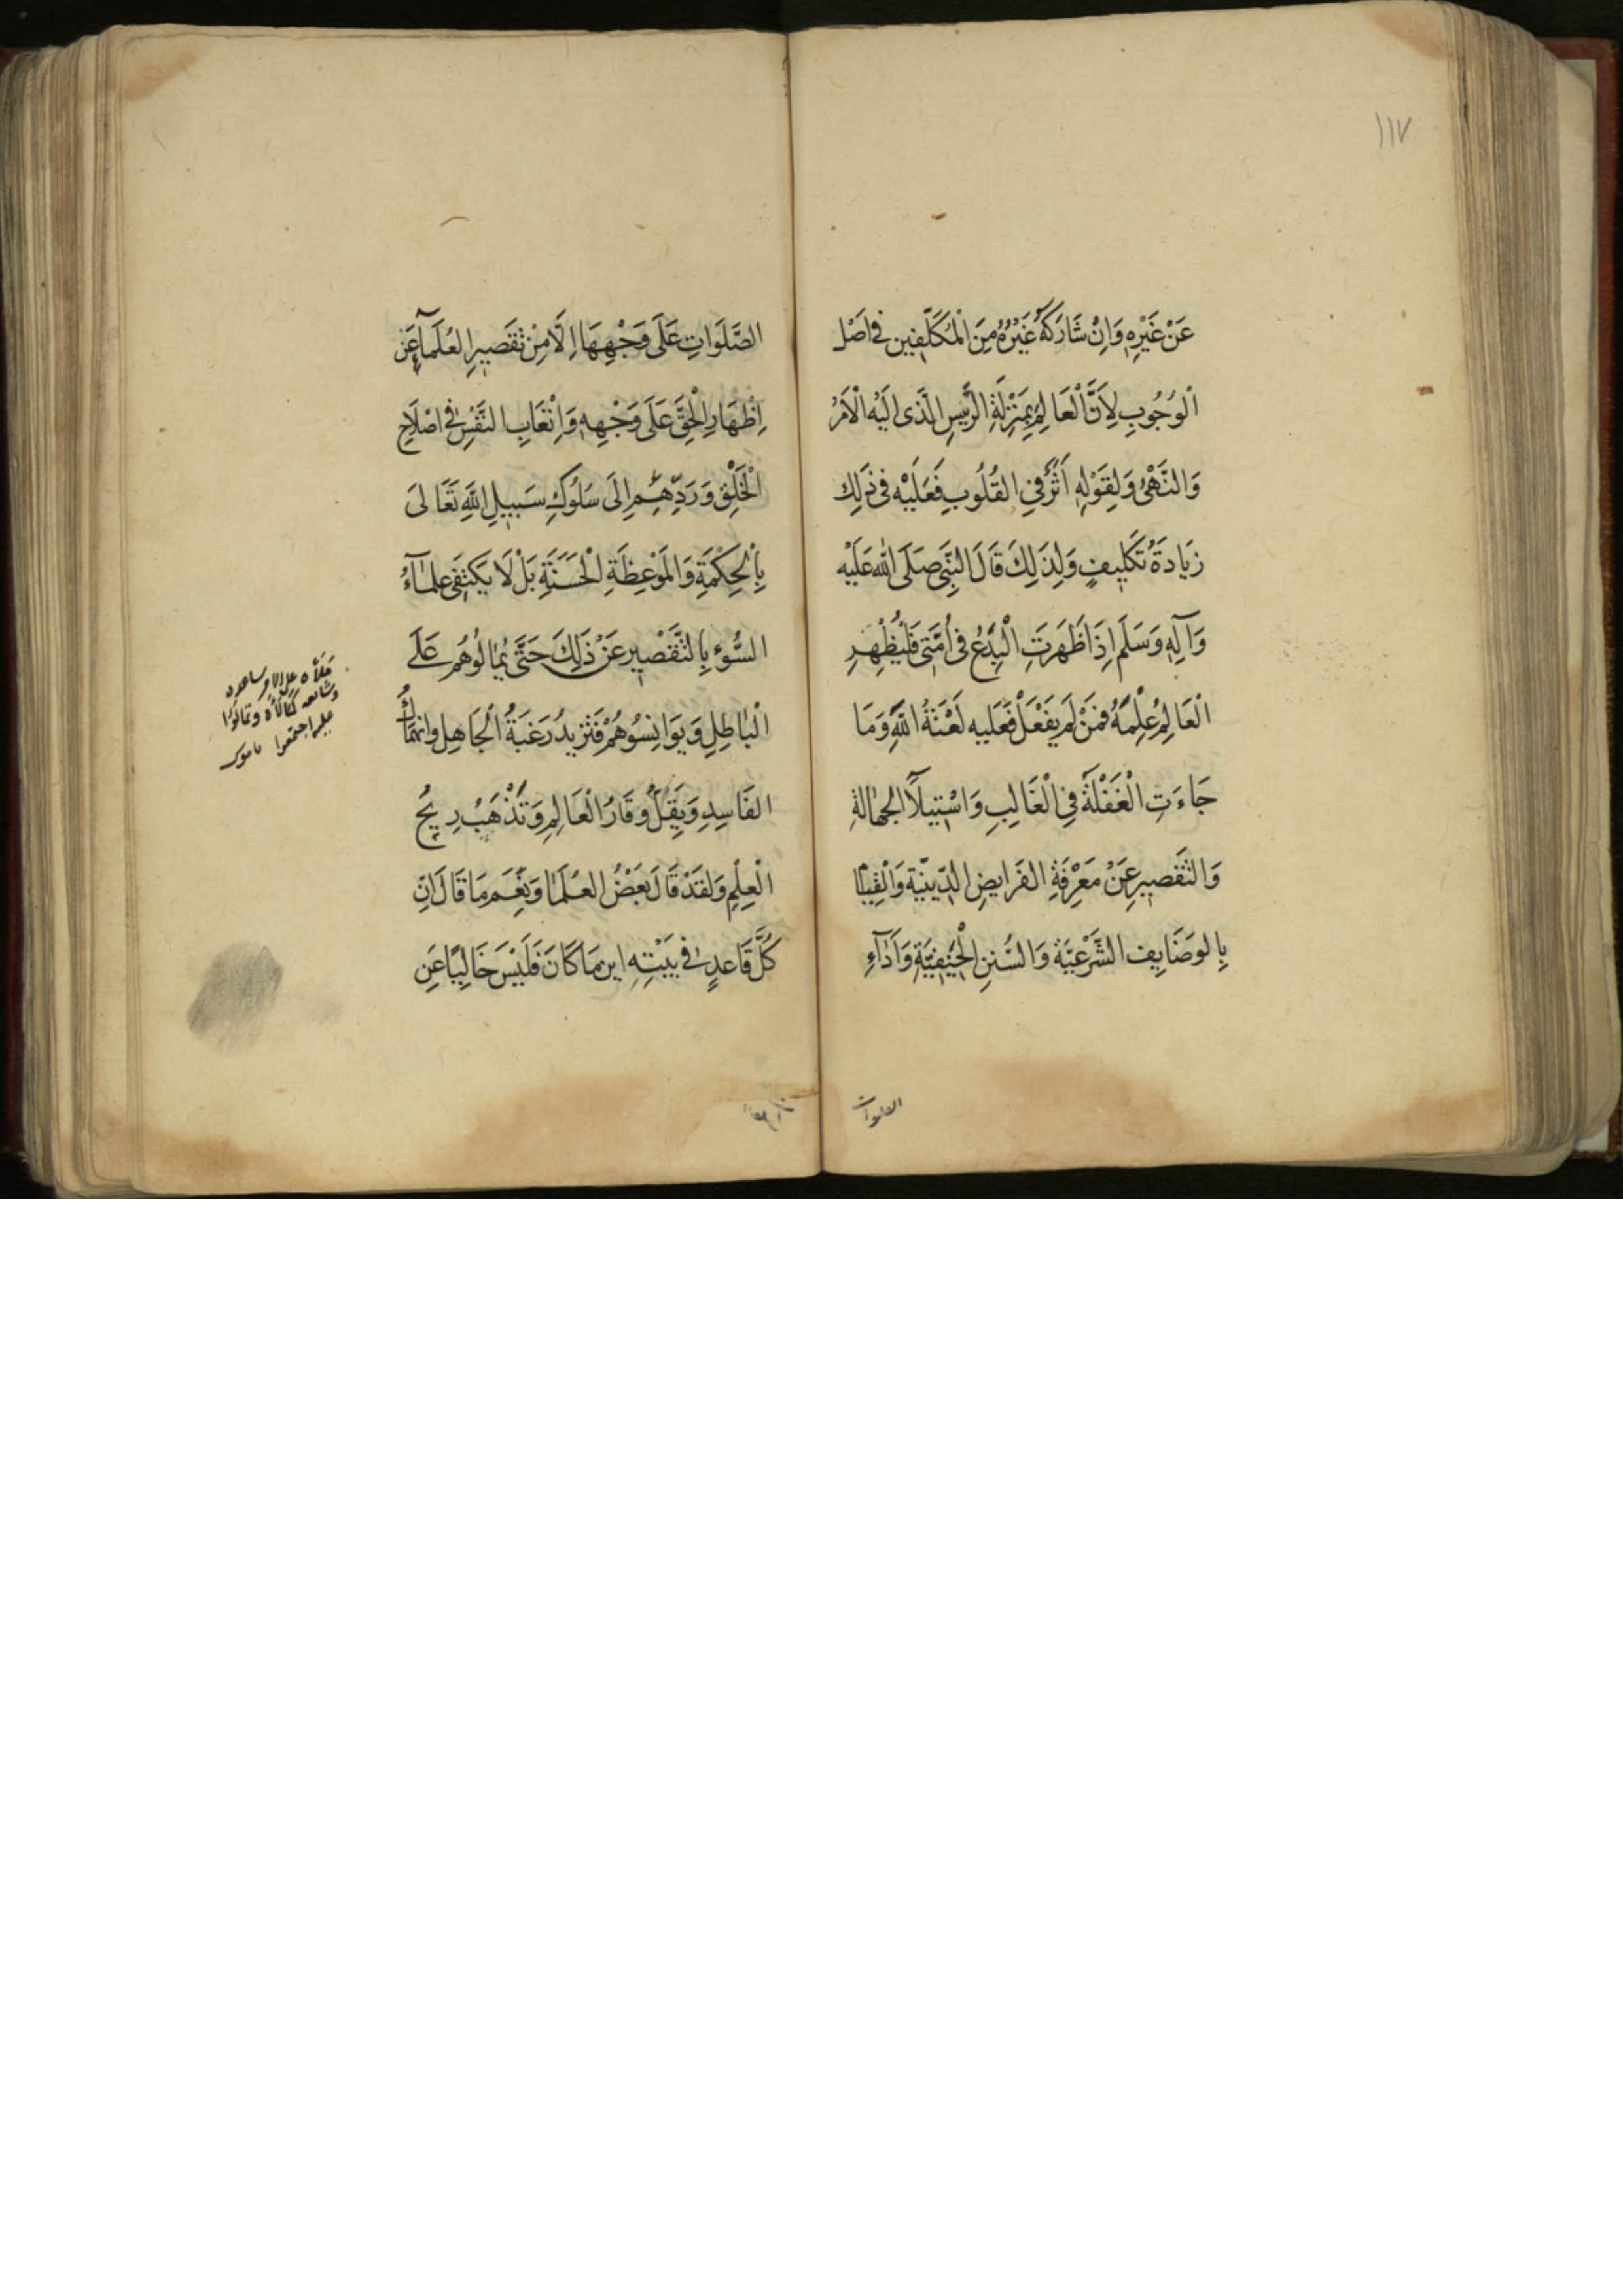 ١١٧
عَنْ غَيْرِهِ وَاِنْ شَارَكَهُ غَيْرُهُ مِنَ الْمُكَلَّفِين فى اَصْل
الْوُجُوبِ لِاَنَّ الْعَالِمَ بِمَنْزِلَةِ الرَّئيسِ الَّذى اِلَيْهِ الْاَمْرُ
وَالنَّهْىُ وَلِقَوْلِهِ اَثَرٌ فِى القُلُوبِ فَعَلَيْهِ فى ذٰلِكَ
زِيَادَةُ تَكْلِيفٍ وَلِذَلِكَ قَالَ النَّبِىُّ صَلَّى اللّٰه عَلَيْهِ
وَآلِهِ وَسَلَّم اِذَا ظَهَرَتِ الْبِدَعُ فى اُمَّتِى فَلْيُظْهِرِ
الْعَالِمُ عِلْمَهُ فمَنْ لَمْ يَفْعَلْ فَعَلَيهِ لَعْنَةُ اللّٰهِ وَمَا
جَاءَتِ الْغَفْلَةُ فِى الْغَالِبِ وَاسْتِيلَآ الجَهٰالَةِ
وَالتَّقصِيرِ عَنْ مَعْرِفَةِ الفَرَايضِ الدِّينِيّة وَالْقِيَامِ
بِالوَضَايِف الشَّرْعِيَّة وَالسُّنَنِ الْحَنِيفِيَّةِ وَاَدَآءِ
الصلوات
الصَّلَوَاتِ عَلَى وَجْهِهَا اِلَّا مِنْ تَقصِيرِ العُلَمَآءِ عَنْ
اِظْهَارِ الْحَقِّ عَلَى وَجْهِهِ وَاِتْعَابِ النَّفْسِ فى اصْلَاحِ
الْخَلْقِ وَرَدِّهِمْ اِلَى سُلُوكِ سَبِيلِ اللّٰهِ تَعَالىَ
بِالْحِكْمَةِ وَالْمَوْعِظَةِ الْحَسَنَةِ بَلْ لَا يَكتَفِى علمَآءُ
السُّوءِ بِالتَّقْصِيرِ عَنْ ذَلِكَ حَتَّى يُمٰالُوهُمْ عَلَى
الْبٰاطِلِ وَيوَانِسُوهُمْ فَتَزِيدُ رَغبَةُ الْجَاهِلِ وانهمَاكُ
الفَاسِدِ وَيَقِلُّ وَقَارُ الْعَالِمِ وَتَذْهَبُ رِيحُ
الْعِلْمِ وَلقَدْ قَالَ بَعْضُ العُلَمَا وَنِعْمَ مَا قَالَ اِنّ
كُلَّ قَاعدٍ فى بَيْتِهِ اينمَا كَانَ فَلَيْسَ خَالِيًا عَنِ
مَلَأَه على الامر ساعده
وشايعه كمَالَأَه وتمالَؤا
عليه اجتمعوا